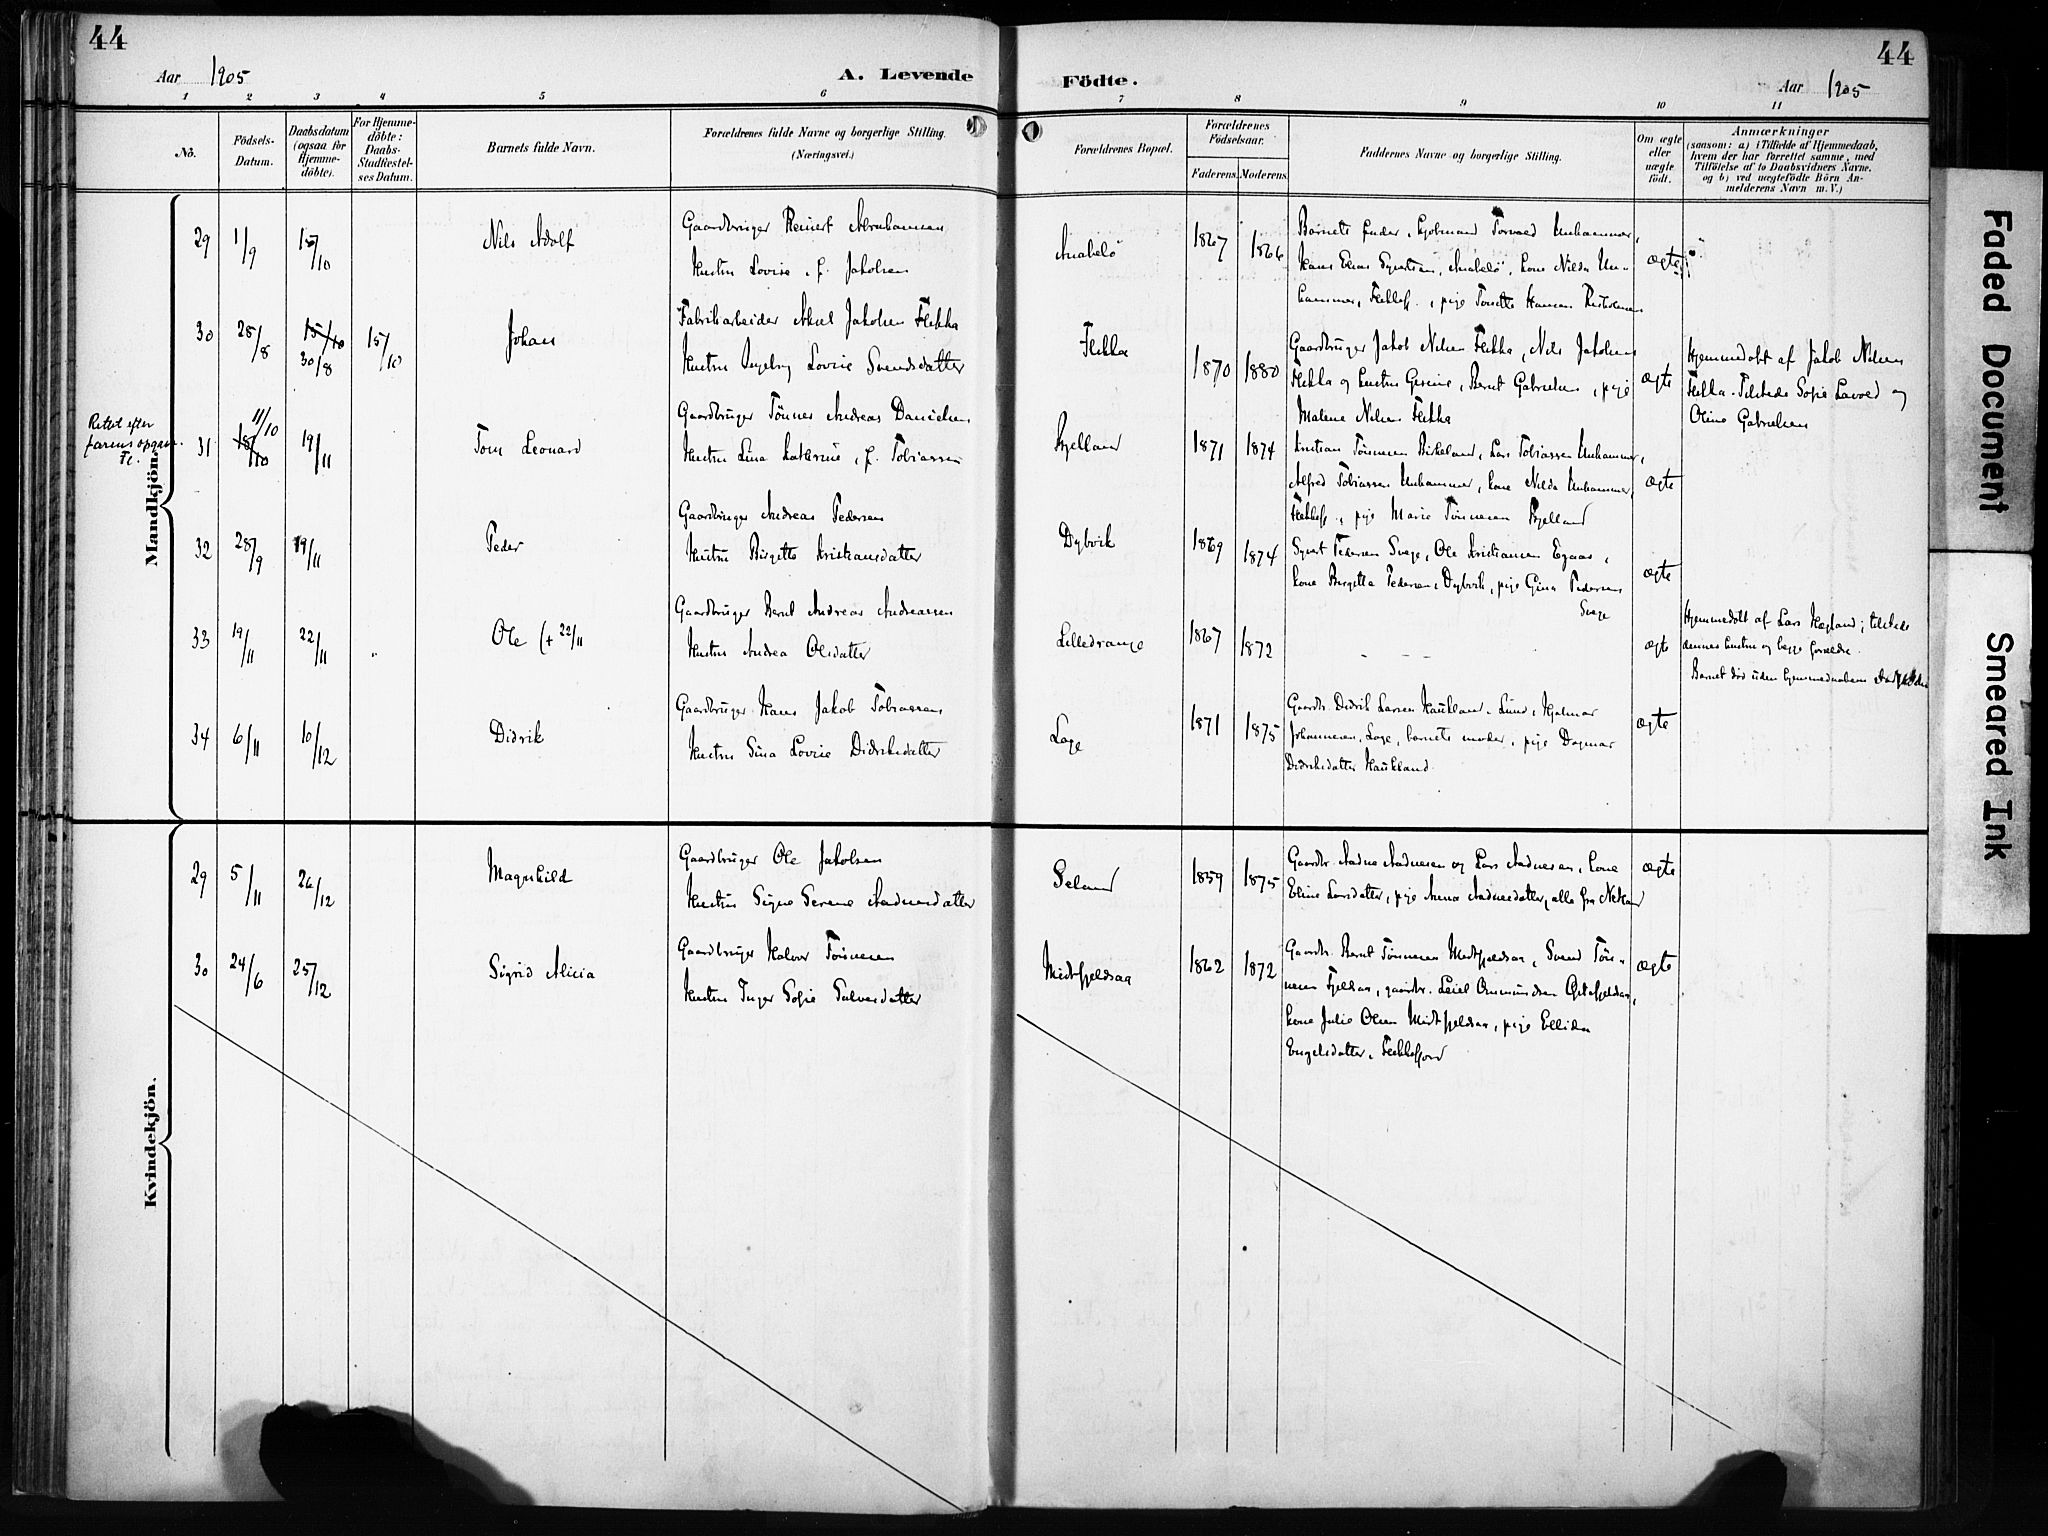 44
Aar 1905
A. Levende
Födte.
Aar 1905
44
1 2 3 4 5 6 7 8 9 10 11
No.
Födsels-
Datum.
Daabsdatum
(ogsaa for
Hjemme-
döbte).
For Hjemme-
döbte:
Daabs-
Stadfæstel-
ses Datum.
Barnets fulde Navn.
Forældrenes fulde Navne og borgerlige Stilling.
(Næringsvei.)
Forældrenes Bopæl.
Forældrenes
Födselsaar.
Faderens. Moderens.
Faddernes Navne og borgerlige Stilling.
Om ægte
eller
uægte
födt.
Anmærkninger
(saasom: a) i Tilfælde af Hjemmedaab,
hvem der har forrettet samme, med
Tilföielse af to Daabsvidners Navne,
og b) ved uægtefödte Börn An-
melderens Navn m. V.)
Mandkjön.
29 1/9 15/10 Nils Adolf
Gaardbruger Reinert Abrahamsen
Hustru Lovise, f. Jakobsen
Anabelö 1867 1866
Barnets fader, Torvald Unhammer,
Hans Elias Anabelö, kone Nilda Un-
hammer, Flekkefj., pige Tonette Hansen
ægte
30 28/8 15/10 30/8 15/10 Johan
Fabrikarbeider Aksel Jakobsen Flikka
Hustru Ingeborg Lovise Svendsdatter
Flikka 1870 1880
Gaardbruger Jakob Nilsen Flikka, Nils Jakobsen
Flikka og hustru Gesine, Bernt Gabrielsen, pige
Malene Nilsen Flikka
ægte
Hjemmedøbt af Jakob Nilsen
Flikka. Tilstede Sofie Lavold og
Oline Gabrielsen
Rettet efter
farens opgave.
31 11/10 18/10 19/11 Tom Leonard
Gaardbruger Tönnes Andreas Danielsen
Hustru Lina Katerine, f. Tobiassen
Bjelland 1871 1874
Kristian Tönnesen Birkeland, Lars Tobiassen Unhammer,
Alfred Tobiassen Unhammer, kone Nilda Unhammer,
Flekkefj., pige Marie Tönnesen Bjelland
ægte
32 28/9 19/11 Peder
Gaardbruger Andreas Pedersen
Hustru Birgitte Kristiansdatter
Dybvik 1869 1874
Syvert Pedersen Svege, Ole Kristiansen Egaas,
kone Birgitta Pedersen, Dybvik, pige Gina Pedersen
Svege
ægte
33 19/11 22/11 Ole (+ 22/11
Gaardbruger Bernt Andreas Andreassen
Hustru Andrea Olsdatter
Lilledrange 1867 1872
ægte
Hjemmedøbt af Lars Hægland; tilstede
dennes hustru og begge forældre.
Barnet död uden hjemmedaabens
34 6/11 10/12 Didrik
Gaardbruger Hans Jakob Tobiassen
Hustru Sina Lovise Didriksdatter
Loge 1871 1875
Gaardbr. Didrik Larsen Haukland, Lund, Hjalmar
Johannesen, Loge, barnets moder, pige Dagmar
Didriksdatter Haukland
ægte
Kvindekjön.
29 5/11 26/12 Magnhild
Gaardbruger Ole Jakobsen
Hustru Signe Serene Aadnesdatter
Seland 1859 1875
Gaardbr. Aadne Aadnesen og Lars Aadnesen, kone
Eline Larsdatter, pige Anna Aadnesdatter, alle fra Netland
ægte
30 24/6 25/12 Sigrid Alicia
Gaardbruger Halvor Tönnesen
Hustru Inger Sofie Salvesdatter
Midtfjeldsaa 1862 1872
Gaardbr. Bernt Tönnesen Midtfjeldsaa, Svend Tön-
nesen Fjeldsaa, gaardbr. Leiel Ommundsen
kone Julie Olsen Midtfjeldsaa, pige Ellida
Engelsdatter, Flekkefjord
ægte
Faded Document
Smeared Ink